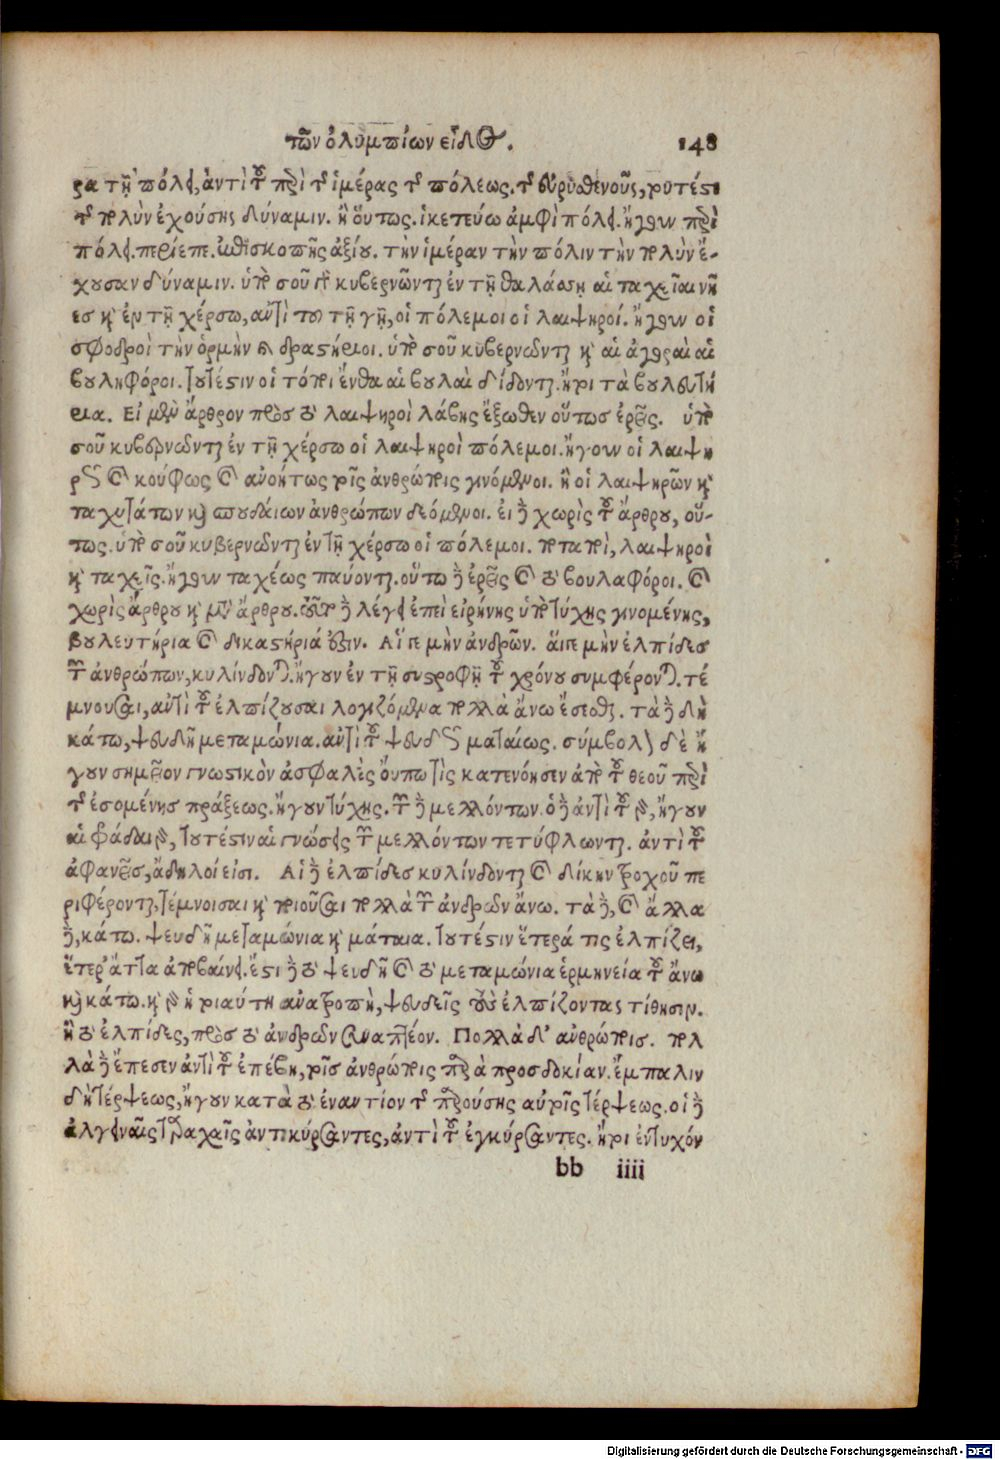 τῶν ὀλυμπίων εἶδος. 148
ρα τῇ πόλει, ἀντὶ τοῦ περὶ τῆς ἱμέρας τῆς πόλεως. τῆς εὐρυσθενοῦς, τουτέστι
τῆς πολὺν ἐχούσης δύναμιν. ἢ οὕτως. ἱκετεύω ἀμφὶ πόλει. ἤγουν περὶ
πόλει. περίεπε. ἐπισκοπῆς ἀξίου. τὴν ἱμέραν τὴν πόλιν τὴν πολὺν ἔ-
χουσαν δύναμιν. ὑπὸ σοῦ γὰρ κυβερνῶνται ἐν τῇ θαλάσσῃ αἱ ταχεῖαι νῆ
ες καὶ ἐν τῇ χέρσῳ, ἀντὶ τοῦ τῇ γῇ, οἱ πόλεμοι οἱ λαιψηροί. ἤγουν οἱ
σφοδροὶ τὴν ὁρμὴν καὶ δραστήριοι. ὑπὸ σοῦ κυβερνῶνται καὶ αἱ ἀγοραὶ αἱ
βουληφόροι. τουτέστιν οἱ τόποι ἔνθα αἱ βουλαὶ δίδονται. ἤτοι τὰ βουλευτή
ρια. Εἰ μὲν ἄρθρον πρὸς τὸ λαιψηροὶ λάβῃς ἔξωθεν οὕτως ἐρεῖς. ὑπὸ
σοῦ κυβερνῶνται ἐν τῇ χέρσῳ οἱ λαιψηροὶ πόλεμοι. ἤγουν οἱ λαιψη
ρῶς καὶ κούφως καὶ ἀνοήτως τοῖς ἀνθρώποις γινόμενοι. ἢ οἱ λαιψηρῶν καὶ
ταχυτάτων καὶ σπουδαίων ἀνθρώπων δεόμενοι. εἰ δὲ χωρὶς τοῦ ἄρθρου, οὕ-
τως. ὑπὸ σοῦ κυβερνῶνται ἐν τῇ χέρσῳ οἱ πόλεμοι. ποταποὶ, λαιψηροὶ
καὶ ταχεῖς. ἤγουν ταχέως παύονται. οὕτω δὲ ἐρεῖς καὶ τὸ βουλαφόροι. καὶ
χωρὶς ἄρθρου καὶ μετὰ ἄρθρου. νῦν δὲ λέγει ἐπὶ εἰρήνης ὑπὸ τύχης γινομένης,
βουλευτήρια καὶ δικαστήριά ἐστιν. Αἵ γε μὴν ἀνδρῶν. αἵγε μὴν ἐλπίδες
τῶν ἀνθρώπων, κυλίνδονται. ἤγουν ἐν τῇ συστροφῇ τοῦ χρόνου συμφέρονται. τέ
μνουσαι, ἀντὶ τοῦ ἐλπίζουσαι λογιζόμεναι πολλὰ ἄνω ἔσεσθαι. τὰ δὲ δὴ
κάτω, ψευδῆ μεταμώνια. ἀντὶ τοῦ ψευδῶς ματαίως. σύμβολον δὲ ἤ
γουν σημεῖον γνωστικὸν ἀσφαλὲς οὔπω τὶς κατενόησεν ἀπὸ τοῦ θεοῦ περὶ
τῆς ἐσομένης πράξεως. ἤγουν τύχης. τῶν δὲ μελλόντων. ὁ δὲ ἀντὶ τοῦ γὰρ, ἤγουν
αἱ φράδαι γὰρ, τουτέστιν αἱ γνώσεις τῶν μελλόντων τετύφλωνται. ἀντὶ τοῦ
ἀφανεῖς, ἄδηλοί εἰσι. Αἱ δὲ ἐλπίδες κυλίνδονται καὶ δίκην τροχοῦ πε
ριφέρονται, τέμνοισαι καὶ ποιοῦσαι πολλὰ τῶν ἀνδρῶν ἄνω. τὰ δὲ, καὶ ἄλλα
δὲ, κάτω. ψευδῆ μεταμώνια καὶ μάταια. τουτέστιν ἕτερά τις ἐλπίζει,
ἕτερ' ἄττα ἀποβαίνει. ἔστι δὲ τὸ ψευδῆ καὶ τὸ μεταμώνια ἑρμηνεία τοῦ ἄνω
καὶ κάτω. καὶ γὰρ ἡ τοιαύτη ἀνατροπὴ, ψευδεῖς τοὺς ἐλπίζοντας τίθησιν.
ἢ τὸ ἐλπίδες, πρὸς τὸ ἀνδρῶν συναπτέον. Πολλὰ δ' ἀνθρώποις. πολ
λὰ δὲ ἔπεσεν ἀντὶ τοῦ ἐπέβη, τοῖς ἀνθρώποις παρὰ προσδοκίαν. ἔμπαλιν
δὴ τέρψεως, ἤγουν κατὰ τὸ ἐναντίον τῆς παρούσης αὐτοῖς τέρψεως. οἱ δὲ
ἀλγειναῖς ταραχαῖς ἀντικύρσαντες, ἀντὶ τοῦ ἐγκύρσαντες. ἤτοι ἐντυχόν
bb iiii
Digitalisierung gefördert durch die Deutsche Forschungsgemeinschaft - DFG